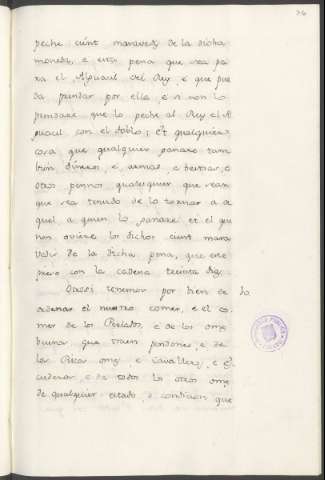 36
peche cient maravedis de la dicha
moneda, e esta pena que sea pa
ra el Alguacil del Rey, e que pue
da prendar por ella, e si non lo
prendare que lo peche al Rey el Al
guacil con el doblo; Et qualquiera
cosa que qualquier ganare tam
bien dineros, e armas, e bestias, e
otros pennos qualesquier que sean
que sea tenudo de lo tornar a a
quel a quien lo ganare et el que
non oviere los dichos cient mara
vedis de la dicha pena, que este
preso con la cadena treinta dias.
Otrossi tenemos por bien de
ordenar el nuestro comer, e el co-
mer de los Perlados, e de los omes
buenos que traen pendones, e de
los Ricos omes e Cavalleros, e Es
cuderos, e de todos los otros omes
de qualquier estado, o condicion que